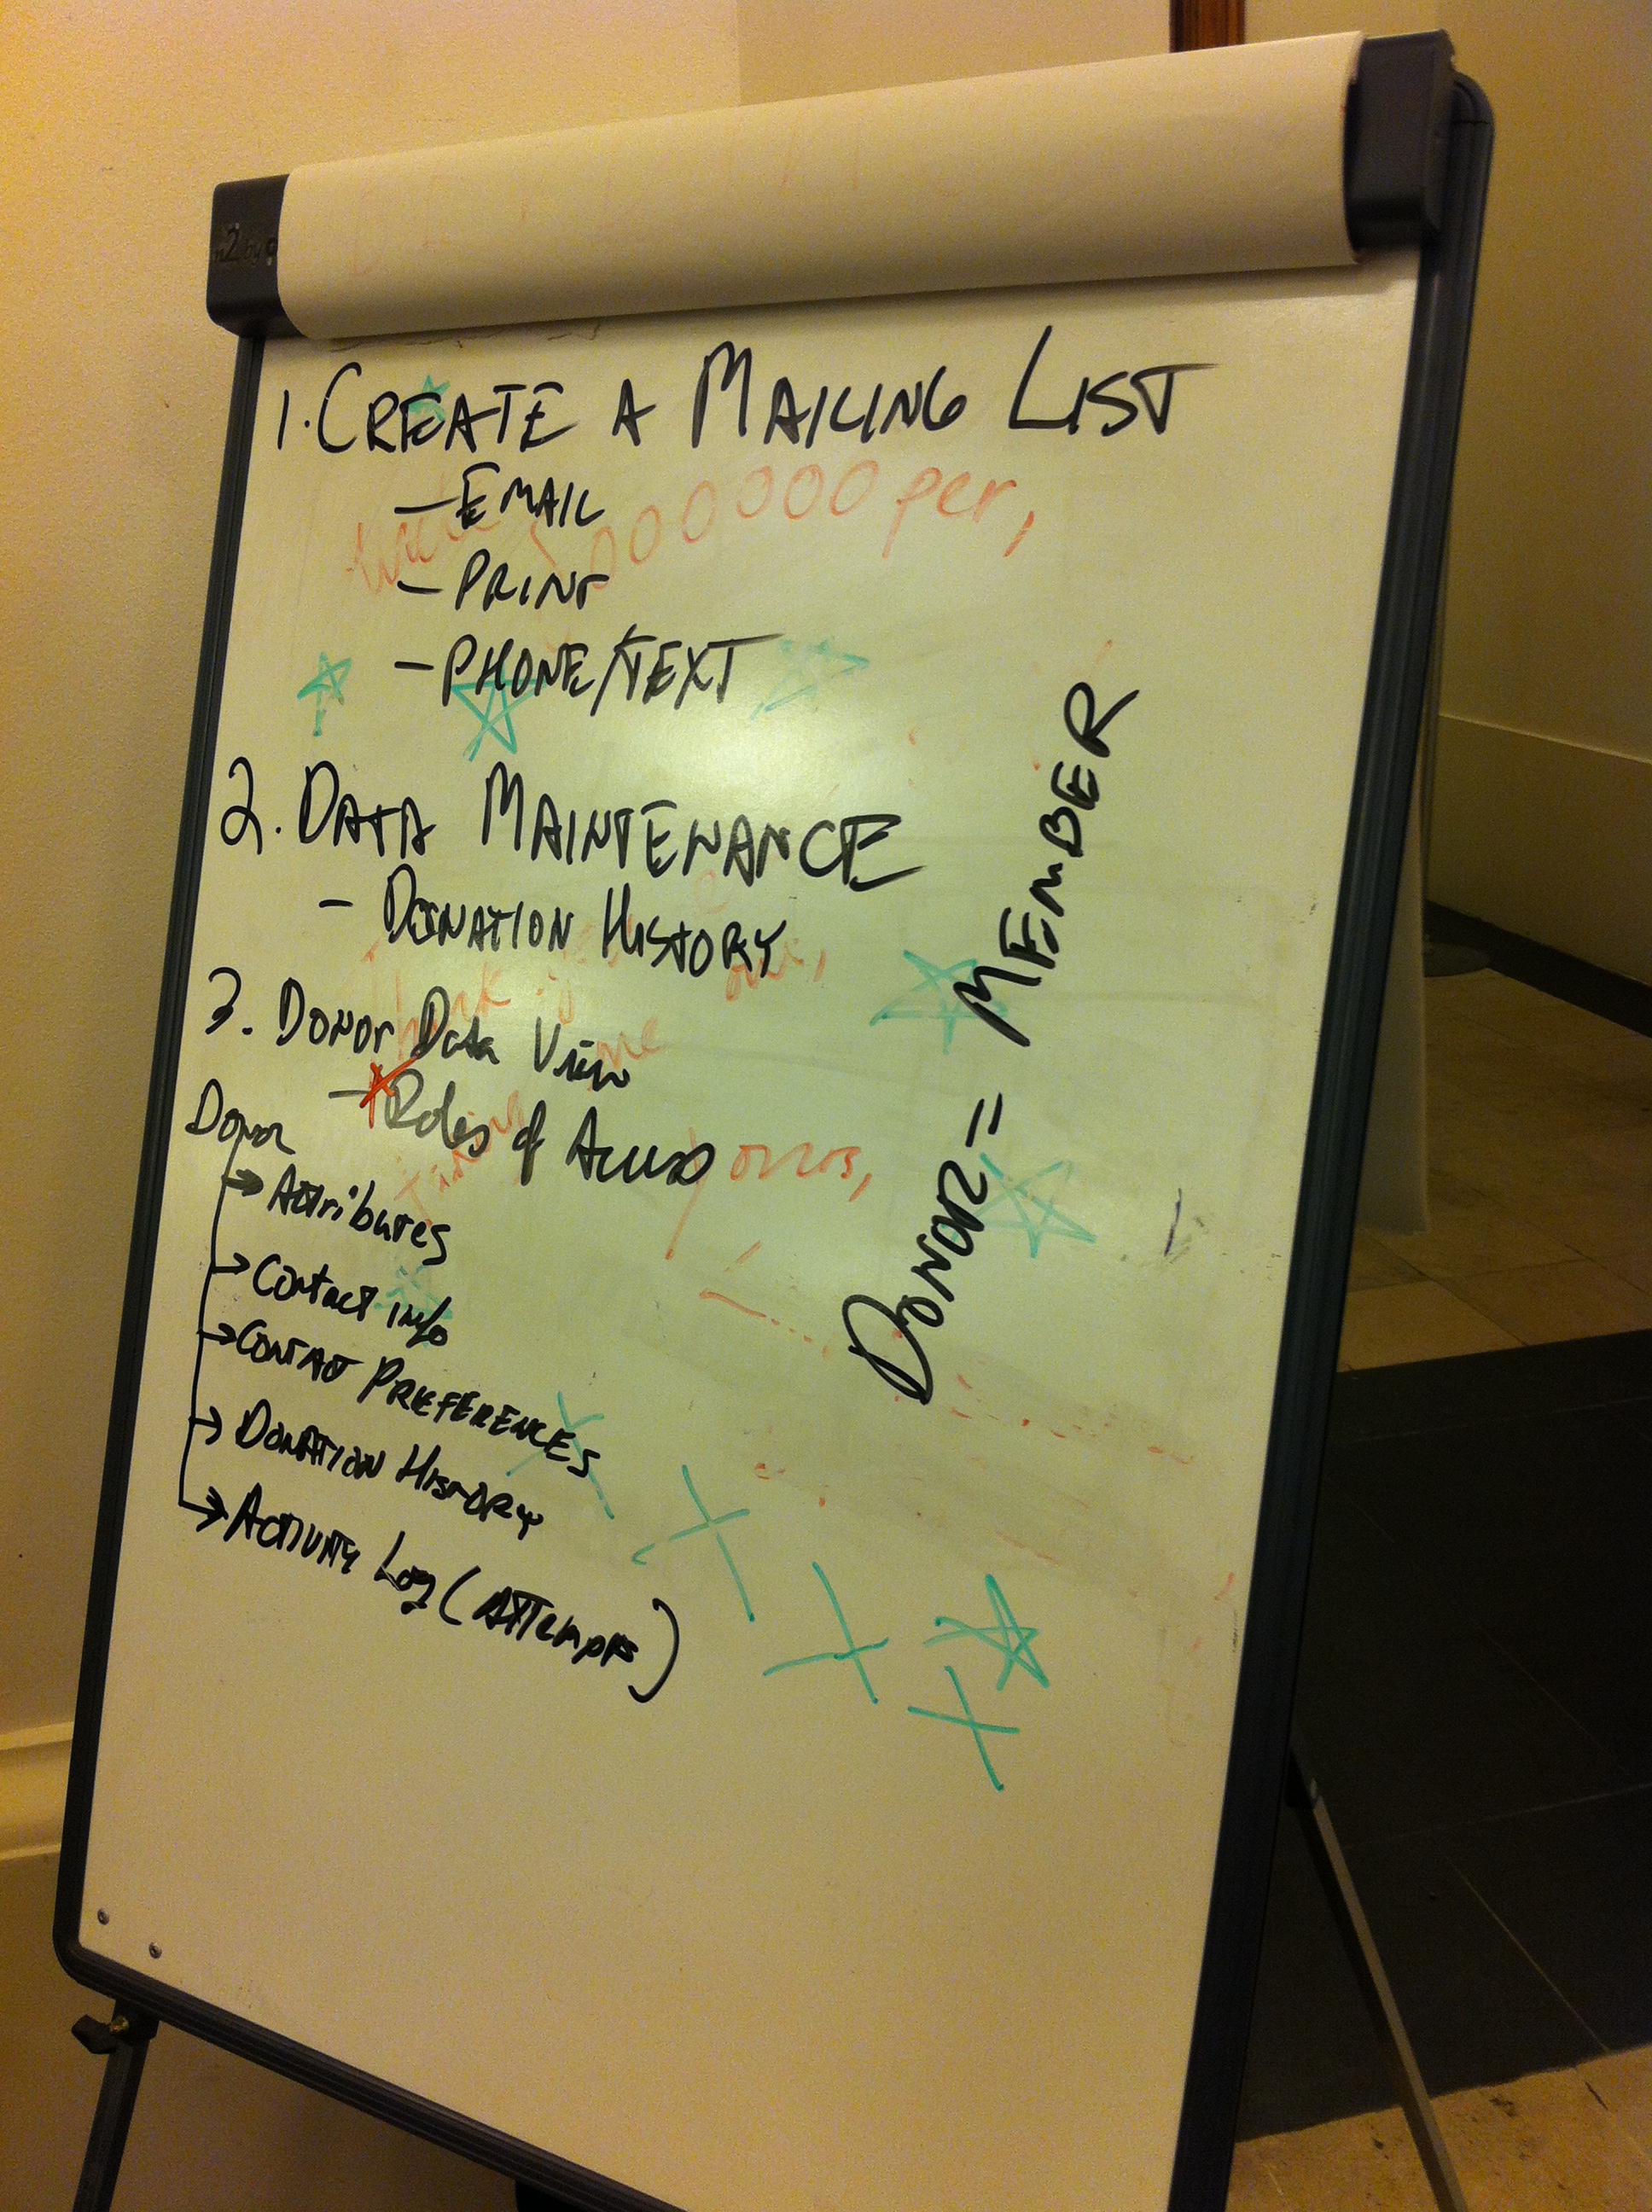 1. CREATE A MAILING LIST
- EMAIL
000000 per,
- PRINT
- PHONE/TEXT
2. DATA MAINTENANCE
- DONATION HISTORY
3. Donor Data View
- Roles of Access
yours,
Donor
→ Attributes
→ Contact info
→ CONTACT PREFERENCES
→ DONATION HISTORY
→ ACTIVITY Log (ATTEMPTS)
DONOR = MEMBER